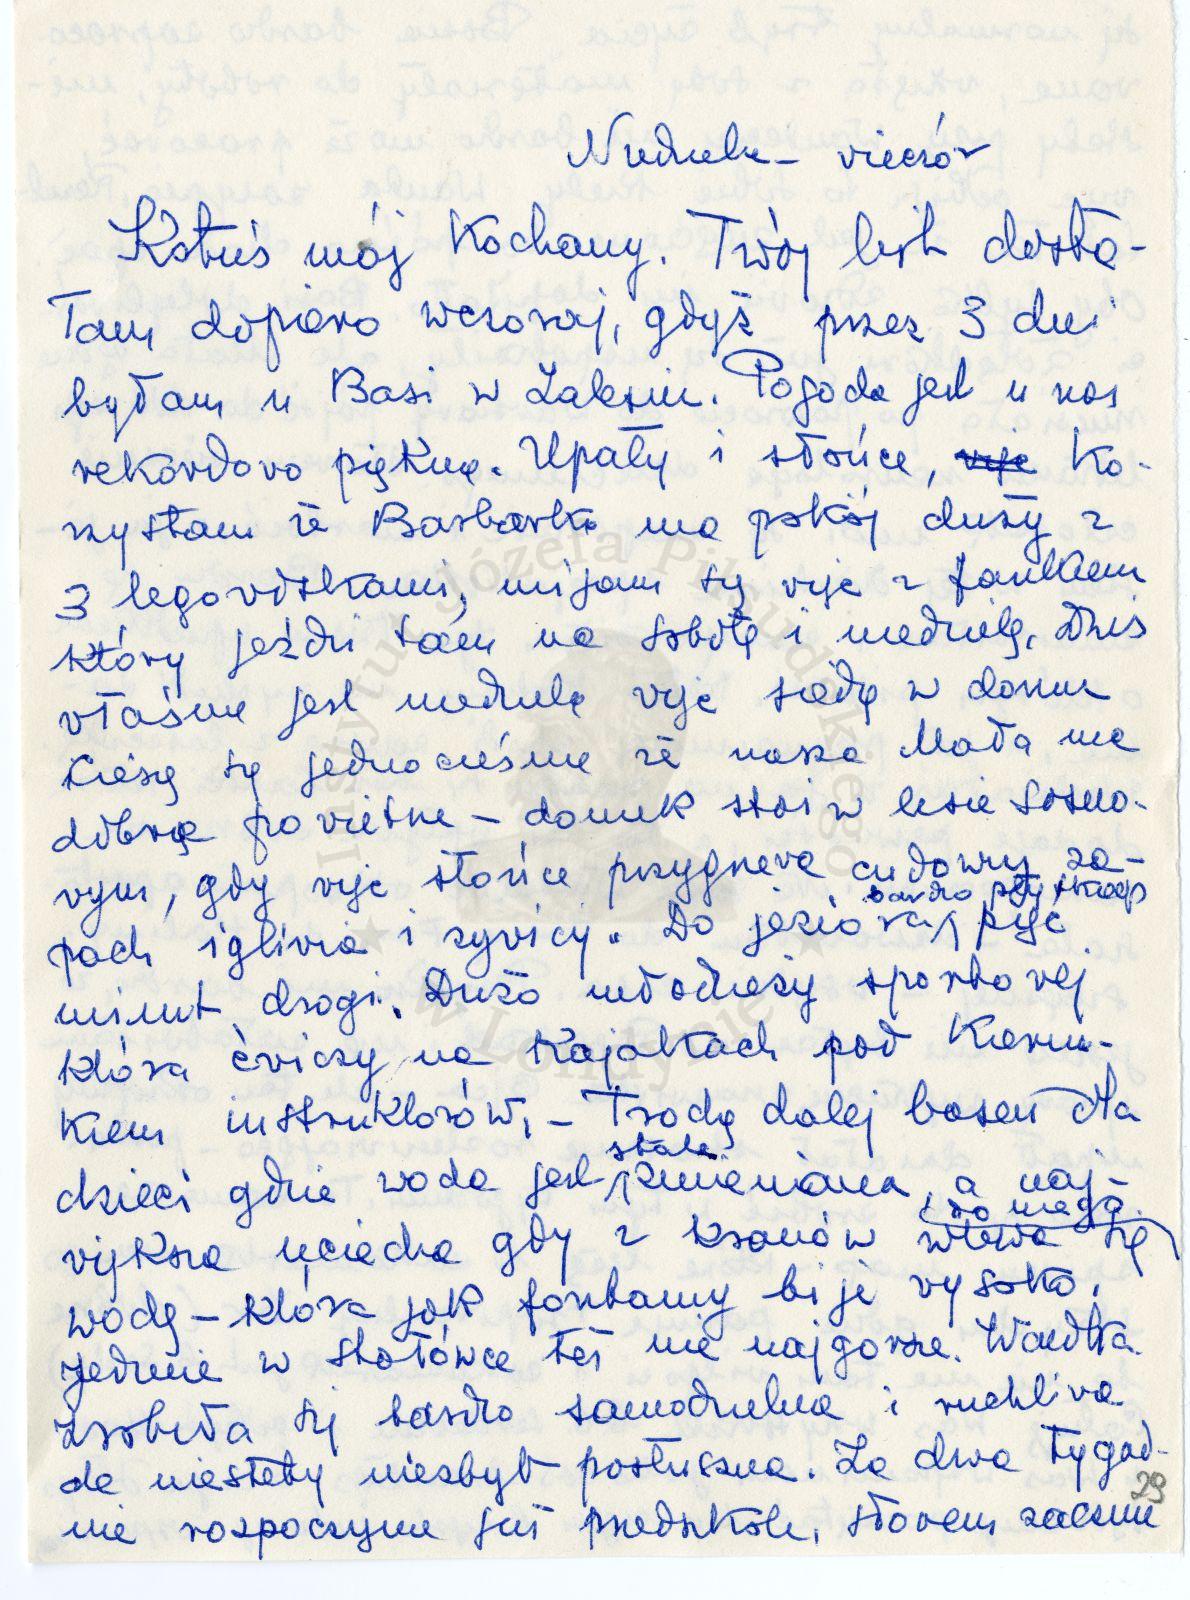 Niedziela – wieczór
Kotuś mój Kochany. Twój list dosta-
łam dopiero wczoraj, gdyż przez 3 dni
byłam u Basi w Zalesiu. Pogoda jest u nas
rekordowo piękna. Upały i słońce, więc ko-
rzystam że Barbarka ma pokój duży z
3 legowiskami, mijam się więc z Jankiem
który jeździ tam na sobotę i niedzielę. Dziś
właśnie jest niedziela więc siedzę w domu
Cieszę się jednocześnie że nasza Mała ma
dobre powietrze – domek stoi w lesie sosno-
wym, gdy więc słońce przygrzewa cudowny za-
pach igliwia i żywicy. Do jeziora / pięć
bardzo
minut drogi. Dużo młodzieży sportowej
która ćwiczy na kajakach pod kierun-
kiem instruktorów, – Trochę dalej basen dla
dzieci gdzie woda jest / zmieniana, a naj-
stale
większa uciecha gdy z kranów wlewa się
wodę – która jak fontanny bije wysoko.
Jedzenie w stołówce też nie najgorsze. Wandka
zrobiła się bardzo samodzielna i ruchliwa
ale niestety niezbyt posłuszna. Za dwa tygod-
nie rozpoczyna już przedszkole, słowem zacznie
29
Instytut Józefa Piłsudskiego
w Londynie